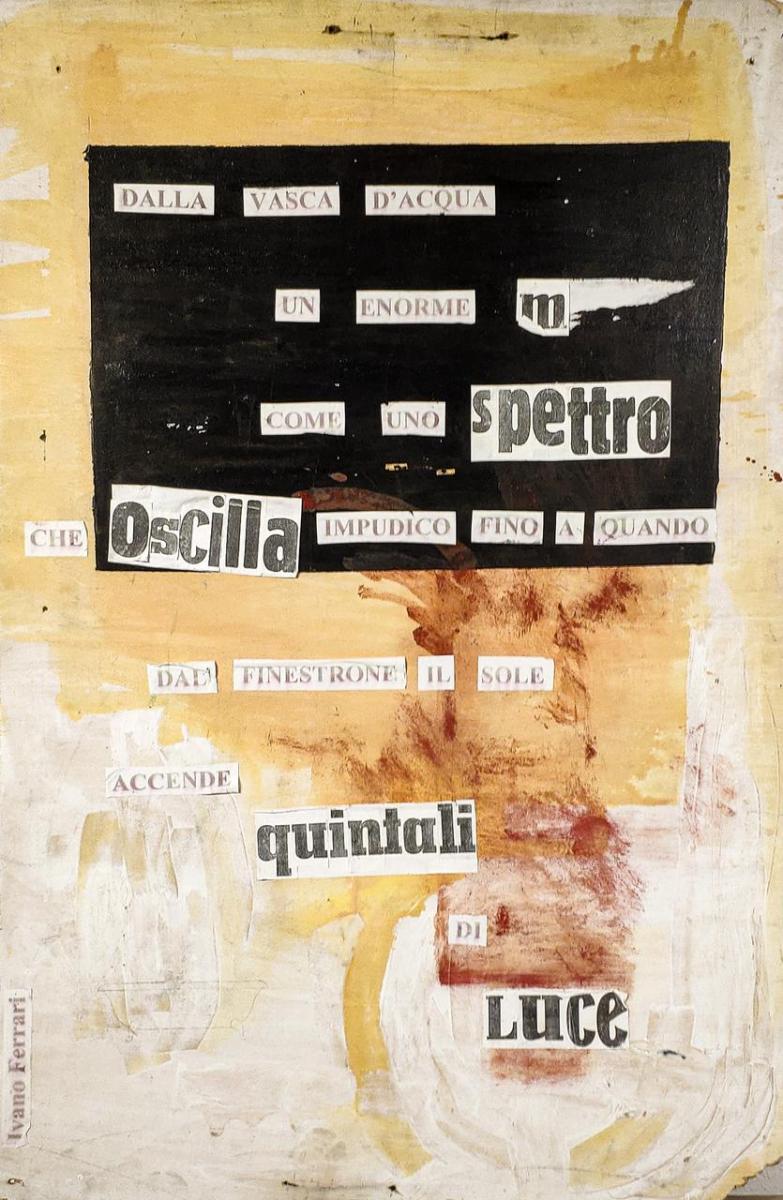 DALLA VASCA D'ACQUA
UN ENORME m
COME UNO spettro
CHE Oscilla IMPUDICO FINO A QUANDO
DAL FINESTRONE IL SOLE
ACCENDE
quintali
DI
Luce
Ivano Ferrari